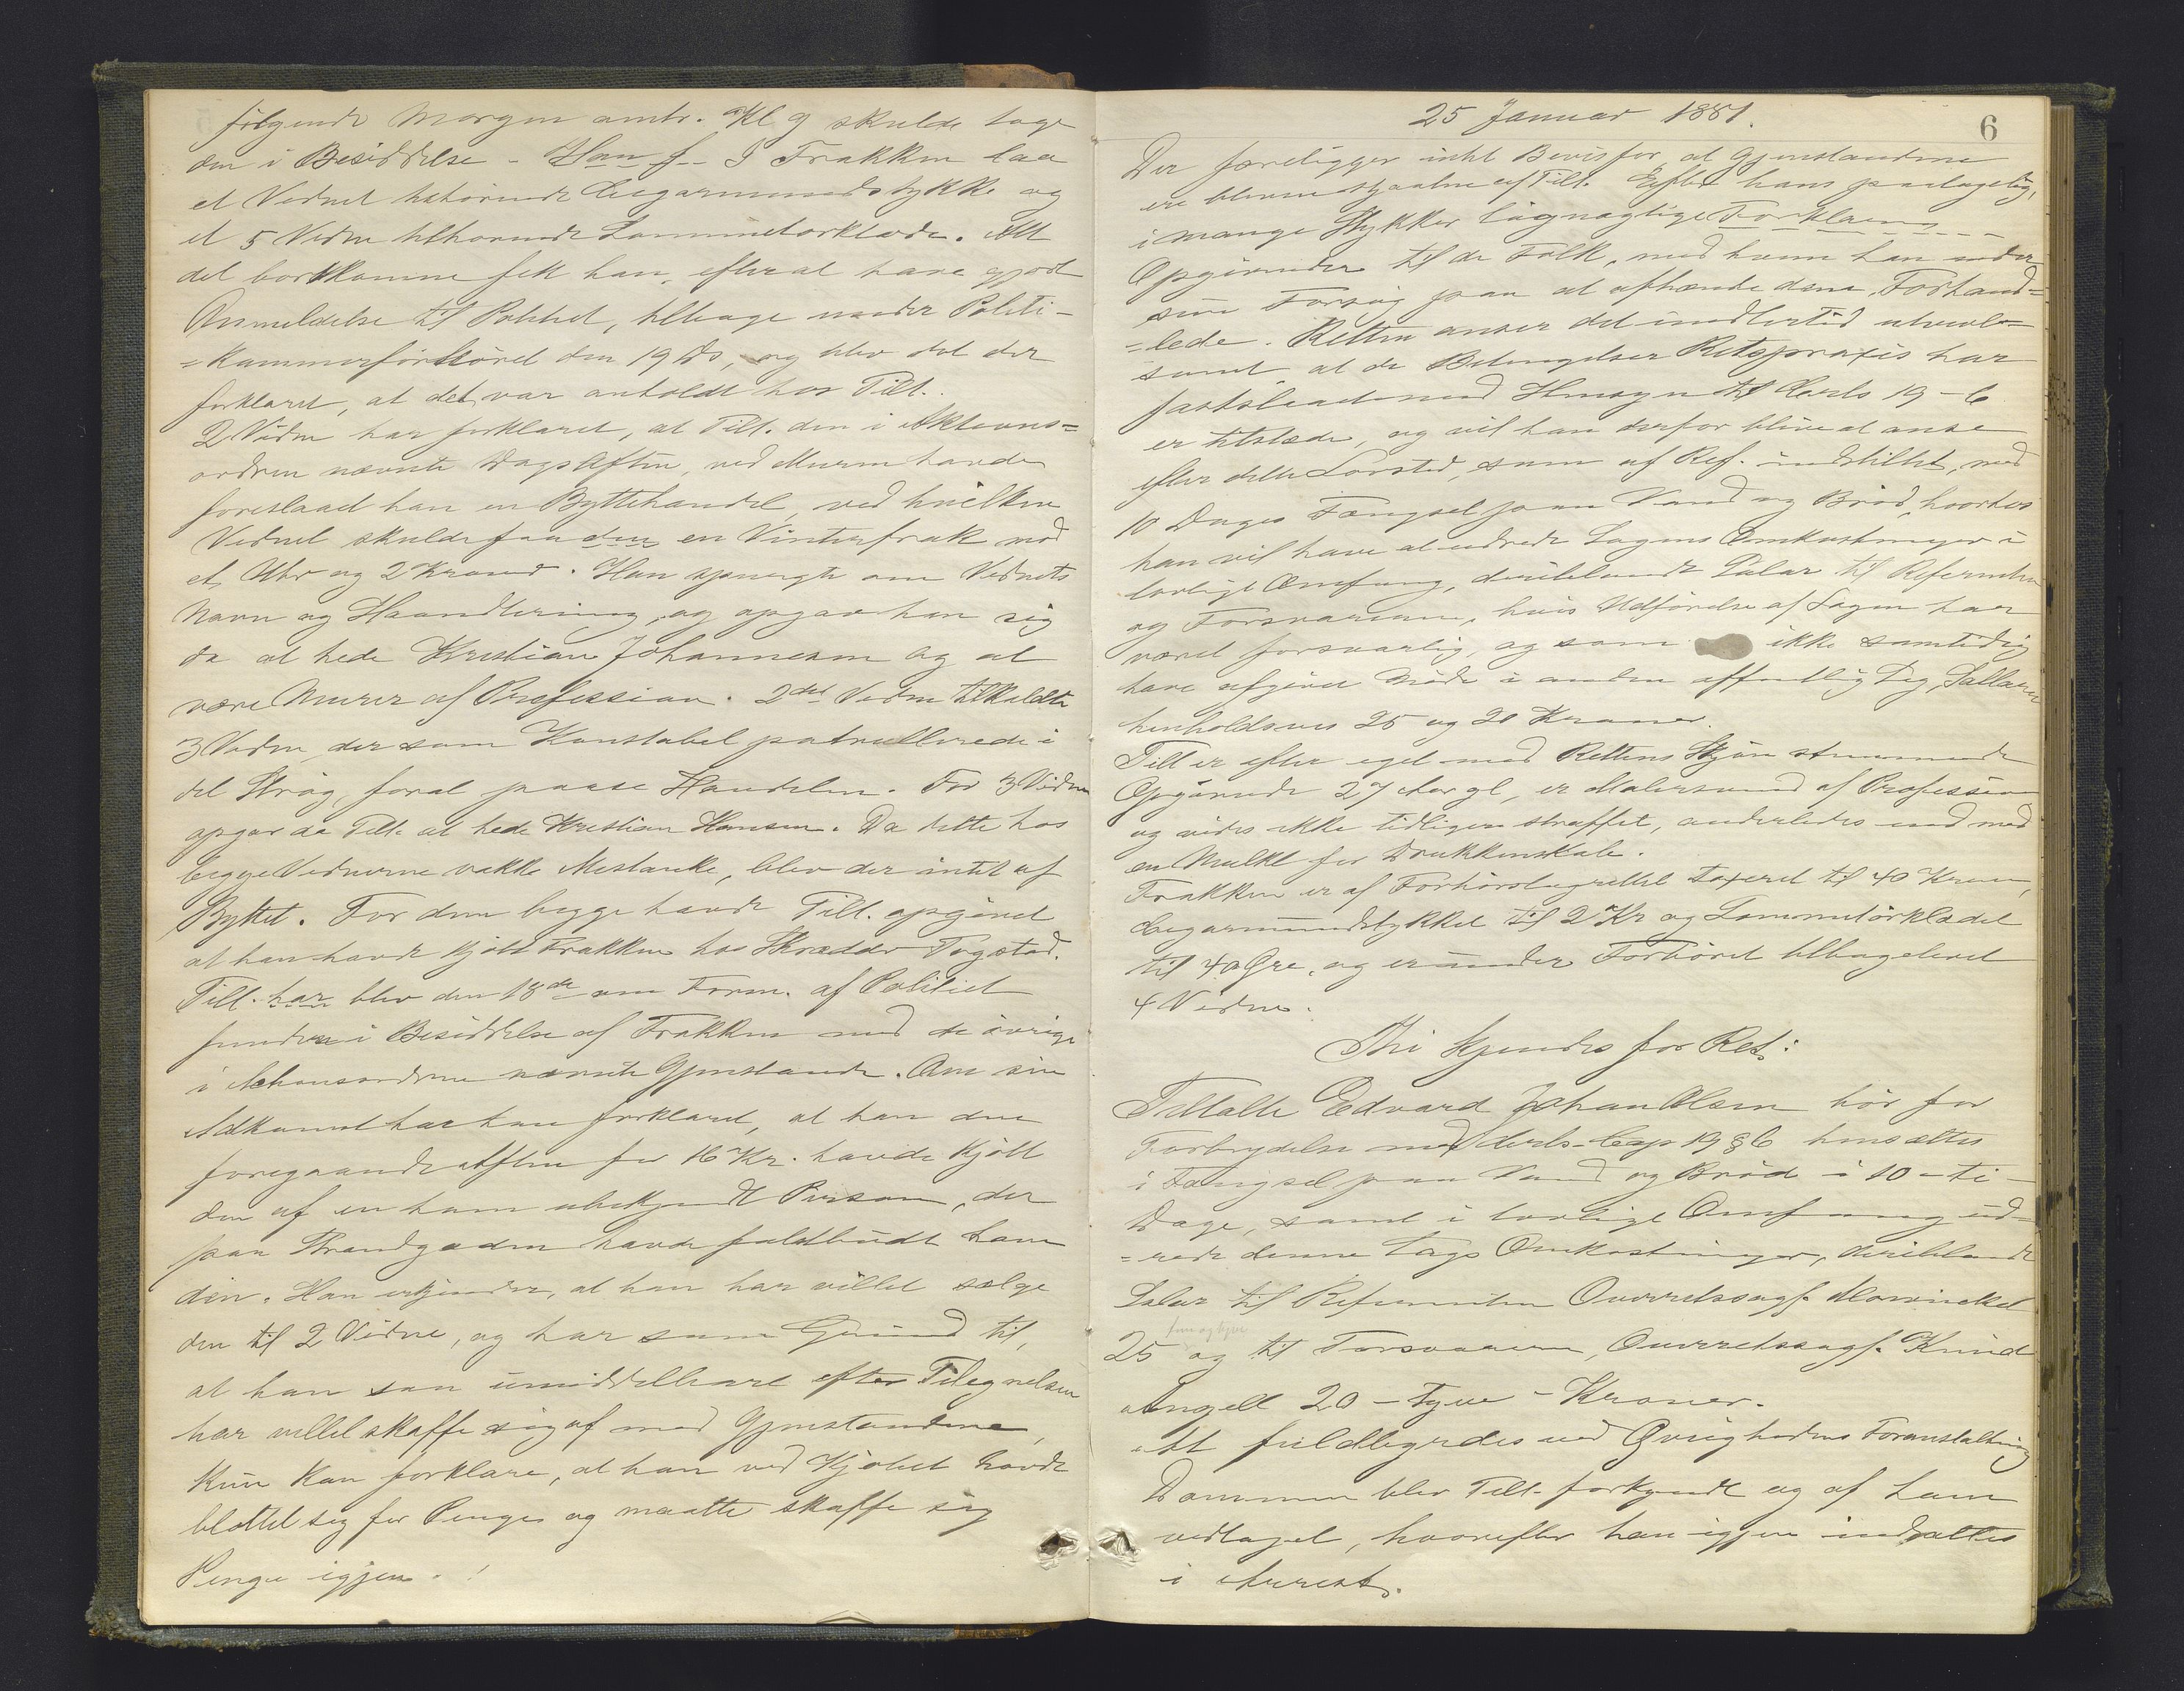 følgende Morgen omtr. Kl 9 skulde tage
den i Besiddelse – Han f– I Frakken laa
et Vidnet tilhørende Cigarmundstykke og
et 5 Vidne tilhørende Lommetørklæde. Alt
det bortkomne fik han, efterat have gjort
Anmeldelse til Politiet, tilbage under Politi-
=kammerforhøret den 19 Ds, og blev det der
forklaret, at det var anholdt hos Tilt.
2 Vidne har forklaret, at Tilt. den i Aktions=
ordren nævnte Dags Aften, ved Muren havde
foreslaaet han en Byttehandel, ved hvilken
Vidnet skulde faa den en Vinterfrak mod
et Uhr og 2 Kroner. Han spurgte om Vidnets
Navn og Haandtering, og opgav han sig
da at hede Kristian Johannesen og at
være Murer af Profession. 2det Vidne tilkaldte
3 Vidne, der som Konstabel patrullerede i
det Strøg, forat paase Handelen. For 3 Vidne
opgav da Tilt. at hede Kristian Hansen. Da dette hos
begge Vidnerne vakte Mistanke, blev der intet af
Byttet. For dem begge havde Tilt. opgivet
at han havde kjøbt Frakken hos Skrædder Togstad.
Tilt. har blev den 18de om Form. af Politiet
funden i Besiddelse af Frakken med de øvrige
i Aktionsordren nævnte Gjenstande. Om sin
Adkomst har han forklaret, at han den
foregaaende Aften for 16 Kr. havde kjøbt
den af en ham ubekjendt Person, der
paa Strandgaden havde falbudt ham
den. Han erkjender, at han har villet sælge
den til 2 Vidne, og har som Grund til,
at han saa umiddelbart efter Tilegnelsen
har villet skaffe sig af med Gjenstandene,
kun kan forklare, at han ved Kjøbet havde
blottet sig for Penge og maatte skaffe sig
Penge igjen.
25 Januar 1881.
6
Der foreligger intet Bevis for, at Gjenstandene
ere blevne stjaalne af Tilt. Efter hans paatagelig,
i mange Stykker løgnagtige Forklaring
Opgivender til de Folk, med hvem han under
sine Forsøg paa at afhænde dem, Forhand=
=lede. Retten anser det imidlertid utvivl=
somt at de Betingelser Retspraxis har
fastslaaet med Hensyn til Crls 19 – 6
er tilstede, og vil han derfor blive at anse
efter dette Lovsted, som af Ref. indstillet, med
10 Dages Fængsel paa Vand og Brød, hvorhos
han vil have at udrede Sagens Omkostninger i
lovligt Omfang, deriblandt Salar til Referenten
og Forsvareren, hvis Udførelse af Sagen har
været forsvarlig, og som ikke samtidig
have afgivet Møde i anden offentlig Sag, Sallarer
henholdsvis 25 og 20 Kroner.
Tilt er efter eget med Rettens Skjøn stemmende
Opgivende 27 Aar gl, er Malersvend af Profession
og vides ikke tidligere straffet, anderledes end med
en Mulkt for Drukkenskab.
Frakken er af Forhørslagrettet taxeret til 40 Kroner,
Cigarmundstykket til 2 Kr og Lommetørklædet
til 40 Øre, og er under Forhøret tilbageleveret
4 Vidne.
Thi kjendes for Ret:
Tiltalte Edvard Johan Olsen bør for
Forbrydelse mod Crls-Cap 19 § 6 hensættes
i Fængsel paa Vand og Brød i 10 – ti –
Dage, samt i lovligt Omfang ud=
=rede denne Sags Omkostninger, deriblandt
Salar til Referenten Overretssagf. Mowinckel
fem og tyve
25 og til Forsvareren, Overretssagf. Knud
Angell 20 – tyve – Kroner.
At fuldbyrdes ved Øvrighedens Foranstaltning
Dommen blev Tilt. forkyndt og af ham
vedtaget, hvorefter han igjen indsattes
i Arrest.